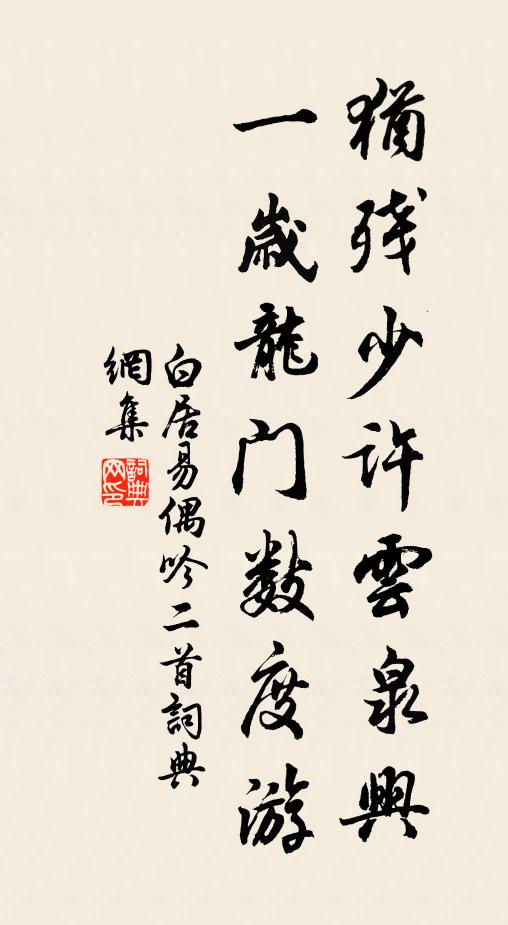 猶残少許雲泉興
一歲龍门数度游
白居易偶吟二首詞典
網集
詞典
网印